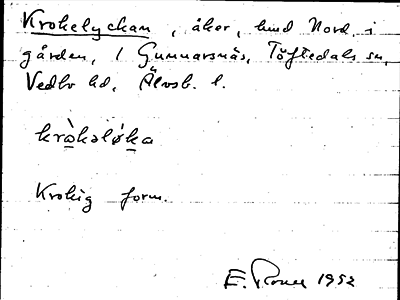 Krokelyckan, åker, hmd Nord. i
gården, 1 Gunnarsnäs, Töftedals sn,
Vedbo hd, Älvsb. l.
kròkəlø̀ka
Krokig form.
E. 1952